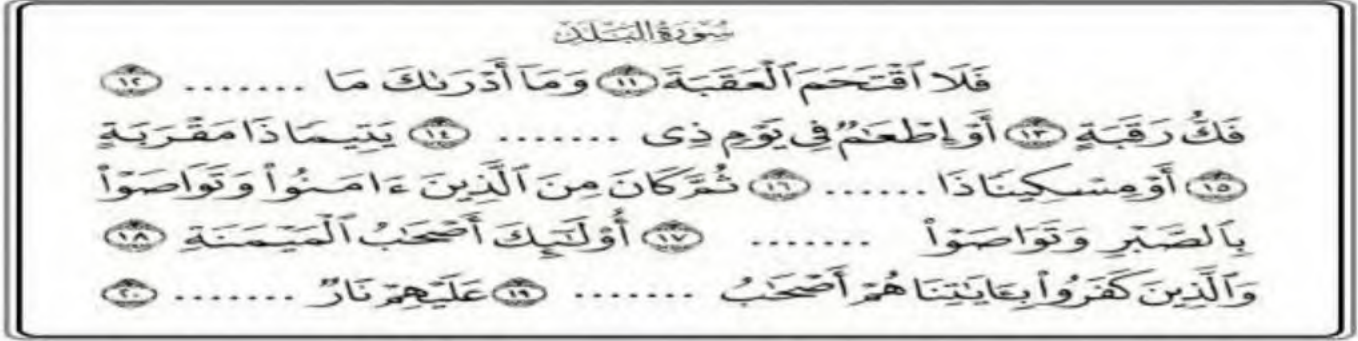 سُورَةُ الْبَلَدِ
فَلَا ٱقْتَحَمَ ٱلْعَقَبَةَ ١١ وَمَآ أَدْرَىٰكَ مَا ....... ١٢
فَكُّ رَقَبَةٍ ١٣ أَوْ إِطْعَٰمٌ فِى يَوْمٍ ذِى ....... ١٤ يَتِيمًا ذَا مَقْرَبَةٍ
١٥ أَوْ مِسْكِينًا ذَا ...... ١٦ ثُمَّ كَانَ مِنَ ٱلَّذِينَ ءَامَنُوا۟ وَتَوَاصَوْا۟
بِٱلصَّبْرِ وَتَوَاصَوْا۟ ....... ١٧ أُو۟لَٰٓئِكَ أَصْحَٰبُ ٱلْمَيْمَنَةِ ١٨
وَٱلَّذِينَ كَفَرُوا۟ بِـَٔايَٰتِنَا هُمْ أَصْحَٰبُ ....... ١٩ عَلَيْهِمْ نَارٌ ....... ٢٠